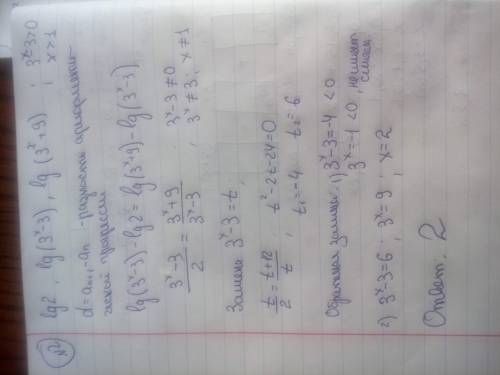 №2
lg2, lg(3ˣ-3), lg(3ˣ+9) ; 3ˣ-3>0
x>1
d = aₙ₊₁-aₙ - разность арифметической прогрессии
lg(3ˣ-3)-lg2 = lg(3ˣ+9)-lg(3ˣ-3)
(3ˣ-3)/2 = (3ˣ+9)/(3ˣ-3) , 3ˣ-3≠0
3ˣ≠3; x≠1
Замена 3ˣ-3=t,
t/2 = (t+12)/t , t²-2t-24=0
t₁=-4, t₂=6
Обратная замена: 1) 3ˣ-3=-4 <0
3ˣ=-1 <0, не имеет смысла
2) 3ˣ-3=6 ; 3ˣ=9 ; x=2
Ответ: 2